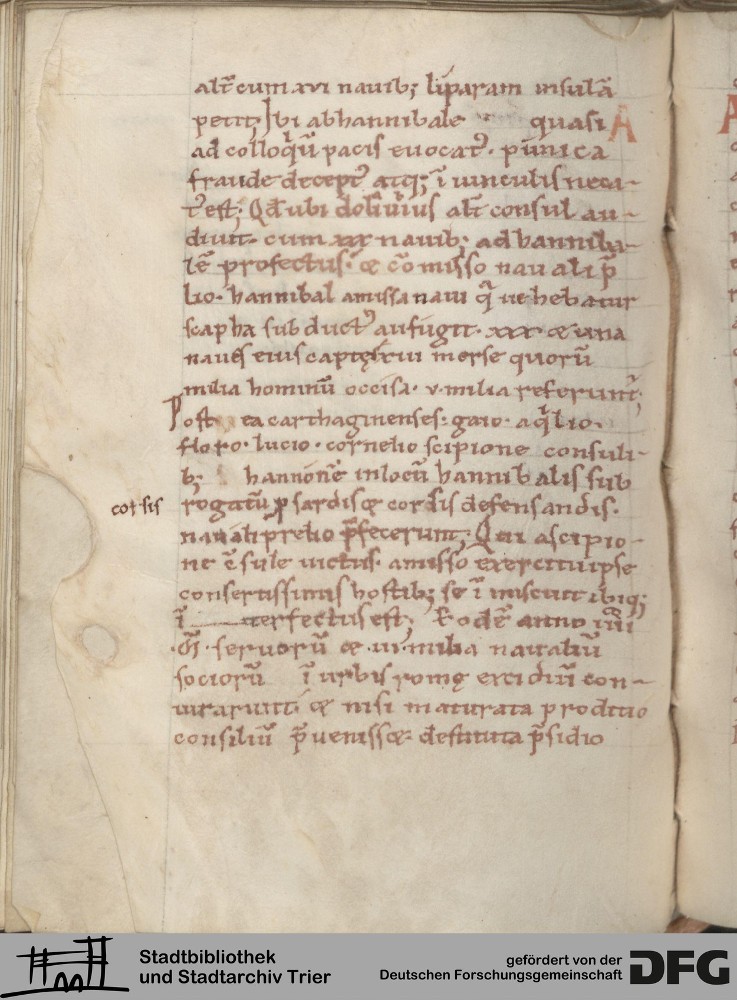 alt̄ cum xvi nauib; liparam insulā
petit; Ibi ab hannibale quasi A
ad colloq̄ū pacis euocat᷒. punica
fraude decept᷒ atq; ī uinculis neca-
t᷒ est; Qd̄ ubi alt̄ consul au-
diuit. cum xxx nauib; ad hanniba-
lē profectus. & cō misso nauali p̄
lio. hannibal amissa naui q̄ uehebatur
scapha subduct᷒ aufugit. xxx & una
naues eius captę merse quorū
milia hominū occisa. v. milia referunt᷒;
Post ea carthaginenses. gaio. aq̄lio.
floro. lucio. cornelio scipione consuli-
b; hannonē in locū hannibalis sub
corsis
rogatū ꝑ sardis & cordis defensandis.
nauali prelio p̄fecerunt; Qui a scipio-
ne cōsule uictus. amisso exercitu ipse
consertissimis hostib; se ī miscuit ibiq;
ī terfectus est; Eodē anno iiii
ōī. seruorū & .iii. milia naualiū
sociorū ī urbis romę excidiū con-
iurarunt. & nisi maturata proditio
consiliū p̄uenisset. destituta p̄sidio
Stadtbibliothek
und Stadtarchiv Trier
gefördert von der
Deutschen Forschungsgemeinschaft
DFG